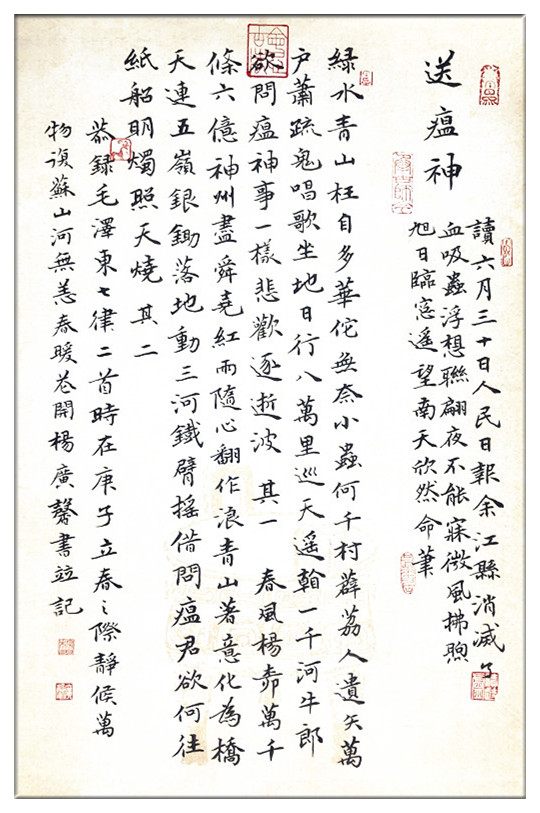 送瘟神
讀六月三十日人民日報余江縣消滅了
血吸蟲浮想聯翩夜不能寐微風拂煦
旭日臨窓遥望南天欣然命筆
綠水青山枉自多華佗無奈小蟲何千村薜荔人遺矢萬
户蕭疏鬼唱歌坐地日行八萬里巡天遥看一千河牛郎
欲問瘟神事一樣悲歡逐逝波 其一 春風楊柳萬千
條六億神州盡舜堯紅雨隨心翻作浪青山著意化為橋
天連五嶺銀鋤落地動三河鐵臂摇借問瘟君欲何往
紙船明燭照天燒 其二
恭録毛澤東七律二首時在庚子立春之際靜候萬
物復蘇山河無恙春暖花開楊廣馨書並記